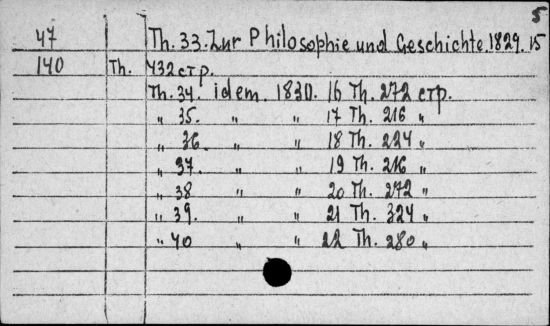 5
47 Th. 33. Zur Philosophie und Geschichte. 1829. 15
140 Th. 432 стр.
Th. 34. idem. 1830. 16 Th. 272 стр.
„ 35. „ „ 17 Th. 216 „
„ 36. „ „ 18 Th. 224 „
„ 37. „ „ 19 Th. 216 „
„ 38 „ „ 20 Th. 272 „
„ 39. „ „ 21 Th. 324 „
„ 40 „ „ 22 Th. 280 „